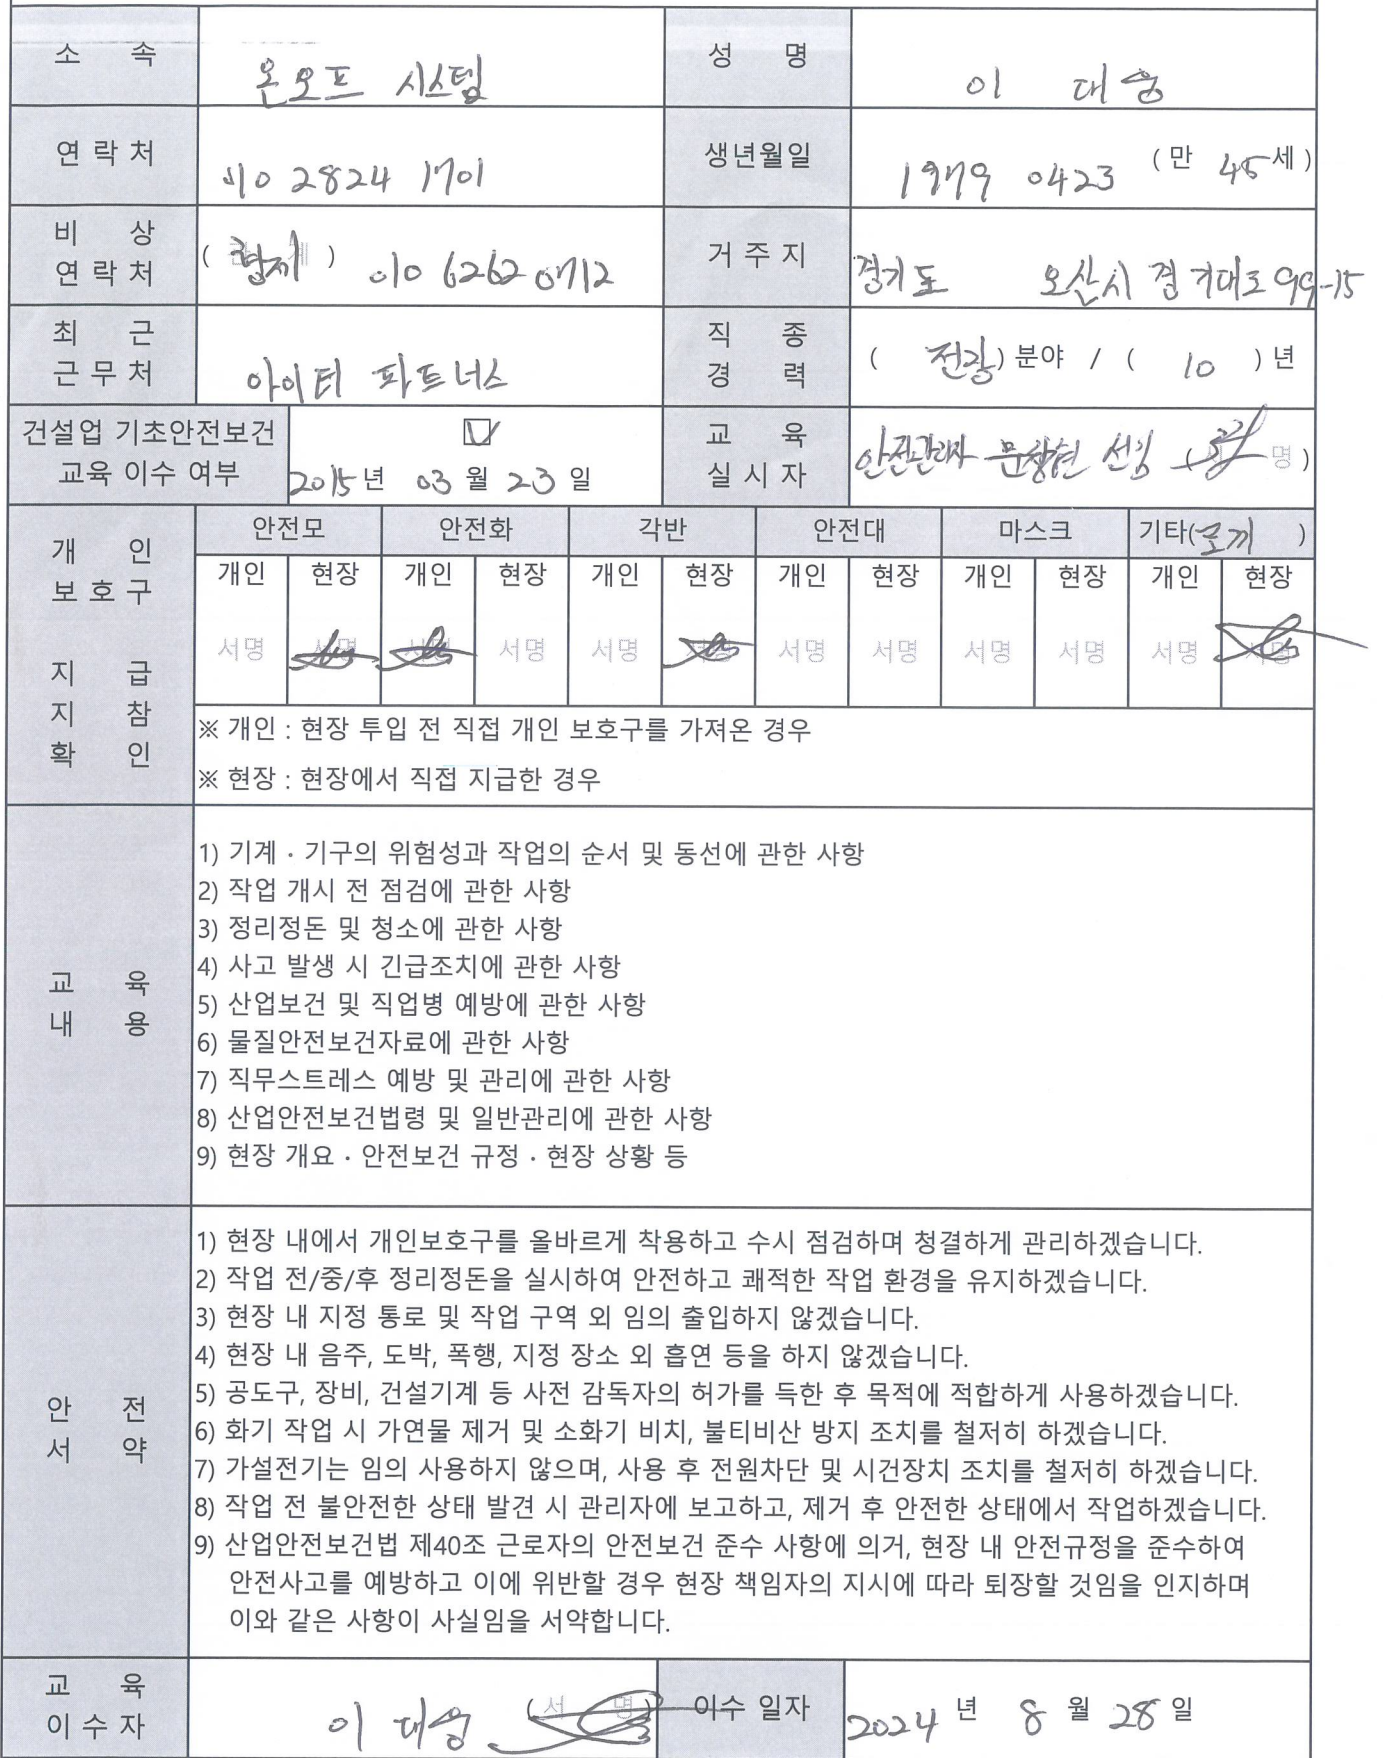 소 속 온오프 시스템 성 명 이 대웅
연 락 처 010 2824 1701 생년월일 1979 0423 (만 45세)
비 상
연 락 처 (형제) 010 6262 0712 거 주 지 경기도 오산시 경기대로 99-15
최 근
근 무 처 아이티 파트너스 직 종
경 력 ( 전장) 분야 / ( 10 ) 년
건설업 기초안전보건
교육 이수 여부 2015년 03월 23일 교 육
실 시 자 안전관리자 문창현 선임 ( 명)
개 인
보 호 구
지 급
지 참
확 인
안전모 안전화 각반 안전대 마스크 기타(조끼 )
개인 현장 개인 현장 개인 현장 개인 현장 개인 현장 개인 현장
서명 서명 서명 서명 서명 서명 서명 서명 서명 서명 서명 서명
※ 개인 : 현장 투입 전 직접 개인 보호구를 가져온 경우
※ 현장 : 현장에서 직접 지급한 경우
교 육
내 용
1) 기계 · 기구의 위험성과 작업의 순서 및 동선에 관한 사항
2) 작업 개시 전 점검에 관한 사항
3) 정리정돈 및 청소에 관한 사항
4) 사고 발생 시 긴급조치에 관한 사항
5) 산업보건 및 직업병 예방에 관한 사항
6) 물질안전보건자료에 관한 사항
7) 직무스트레스 예방 및 관리에 관한 사항
8) 산업안전보건법령 및 일반관리에 관한 사항
9) 현장 개요 · 안전보건 규정 · 현장 상황 등
안 전
서 약
1) 현장 내에서 개인보호구를 올바르게 착용하고 수시 점검하며 청결하게 관리하겠습니다.
2) 작업 전/중/후 정리정돈을 실시하여 안전하고 쾌적한 작업 환경을 유지하겠습니다.
3) 현장 내 지정 통로 및 작업 구역 외 임의 출입하지 않겠습니다.
4) 현장 내 음주, 도박, 폭행, 지정 장소 외 흡연 등을 하지 않겠습니다.
5) 공도구, 장비, 건설기계 등 사전 감독자의 허가를 득한 후 목적에 적합하게 사용하겠습니다.
6) 화기 작업 시 가연물 제거 및 소화기 비치, 불티비산 방지 조치를 철저히 하겠습니다.
7) 가설전기는 임의 사용하지 않으며, 사용 후 전원차단 및 시건장치 조치를 철저히 하겠습니다.
8) 작업 전 불안전한 상태 발견 시 관리자에 보고하고, 제거 후 안전한 상태에서 작업하겠습니다.
9) 산업안전보건법 제40조 근로자의 안전보건 준수 사항에 의거, 현장 내 안전규정을 준수하여
안전사고를 예방하고 이에 위반할 경우 현장 책임자의 지시에 따라 퇴장할 것임을 인지하며
이와 같은 사항이 사실임을 서약합니다.
교 육
이 수 자 이 대웅 (서 명) 이수 일자 2024 년 8 월 28 일